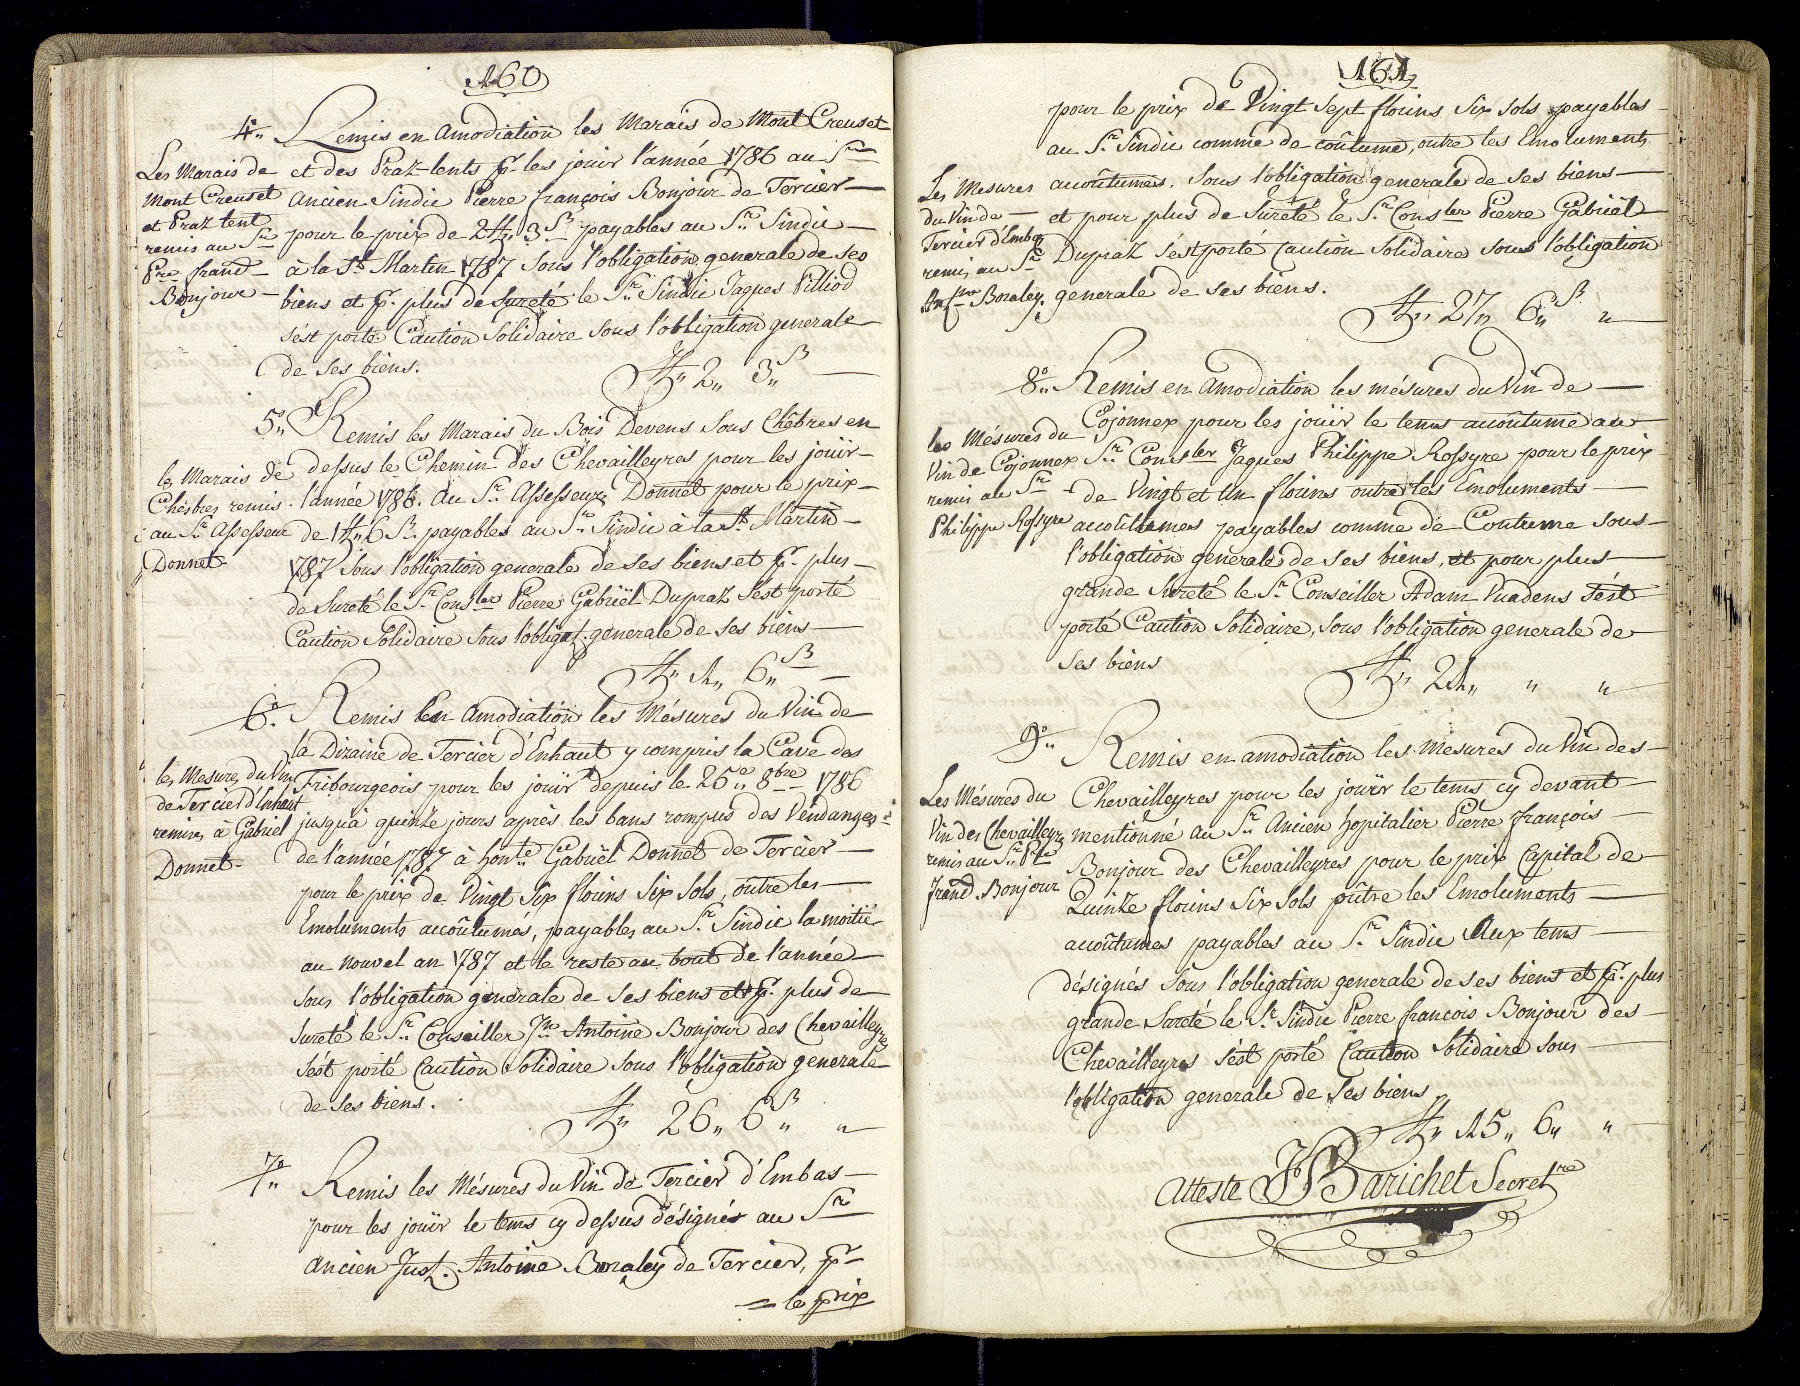 160
4°„ Remis en amodiation les Marais de Mont Creuset
et des Praz-tents pr. les jouir l'année 1786 au Sr
ancien Sindic Pierre françois Bonjour de Tercier
pour le prix de 2 ff„ 3 ß payables au Sr. Sindic
à la St. Martin 1787 sous l'obligation generale de ses
biens et pr. plus de sureté le Sr. Sindic Jaques Pilliod
s'est porté Caution Solidaire sous l'obligation generale
de ses biens.
ff„ 2„ 3„ ß
Les Marais de
Mont Creuset
et Praz tent
remis au Sr
Pre. franc
Bonjour
5°„ Remis les Marais du Bois Devens sous Chêbres en
dessus le Chemin des Chevailleyres pour les jouir
l'année 1786. au Sr. Assesseur Donnet pour le prix
de 1 ff„ 6 ß. payables au Sr. Sindic à la St. Martin
1787 sous l'obligation generale de ses biens et pr. plus
de sureté le Sr. Consler Pierre Gabriël Dupraz s'est porté
Caution Solidaire sous l'obligat. generale de ses biens
ff„ 1„ 6„ ß
les Marais de
Chêsbres remis
au Sr. Assesseur
Donnet
6°. Remis en amodiation les Mésures du Vin de
la Dizaine de Tercier d'Enhaut y compris la Cave des
Fribourgeois pour les jouir depuis le 26e„ 8bre 1786
jusqu'a quinze jours après les bans rompus des Vendanges
de l'année 1787 à honte. Gabriël Donnet de Tercier
pour le prix de Vingt Six florins Six Sols, outre les
Emoluments accoûtumés, payables au Sr. Sindic la moitié
au nouvel an 1787 et le reste au bout de l'année
sous l'obligation generale de ses biens et pr. plus de
sureté le Sr. Conseiller Jn Antoine Bonjour des Chevailleyres
s'ést porté Caution Solidaire sous l'obligation generale
de ses biens.
ff„ 26„ 6„ ß „
les Mesures du Vin
de Tercier d'Enhaut
remises à Gabriel
Donnet
7°„ Remis les Mésures du Vin de Tercier d'Embas
pour les jouïr le tems cy dessus désignés au Sr
ancien Just. Antoine Boraley de Tercier, pr
= le prix
161
pour le prix de Vingt Sept florins Six Sols payables
au Sr. Sindic comme de coûtume, outre les Emoluments
accoûtumés. Sous l'obligation generale de ses biens
et pour plus de Sureté le Sr. Consler Pierre Gabriël
Dupraz s'ést porté Caution Solidaire sous l'obligation
generale de ses biens.
ff„ 27„ 6„ ß „
Les Mesures
du Vin de
Tercier d'Embas
remis au Sr
Boraley.
8°„ Remis en amodiation les mésures du Vin de
Cojonnex pour les jouir le tems accoûtumé au
Sr. Consler Jaques Philippe Rossyre pour le prix
de Vingt et Un florins outre les Emoluments
accoûtumes payables comme de Coutume sous
l'obligation generale de ses biens, et pour plus
grande sureté le Sr. Conseiller Adam Vuadens s'ést
porté Caution Solidaire, sous l'obligation generale de
ses biens
ff„ 21„ „ „
les Mésures du
Vin de Cojonnex
remis au Sr
Philippe Rossyre
9°„ Remis en amodiation les mesures du Vin des
Chevailleyres pour les jouïr le tems cy devant
mentionné au Sr. Ancien hopitalier Pierre françois
Bonjour des Chevailleyres pour le prix Capital de
Quinze florins Six Sols outre les Emoluments
accoûtumes payables au Sr. Sindic Aux tems
désignés sous l'obligation generale de ses biens et pr. plus
grande sureté le Sr. Sindic Pierre francois Bonjour des
Chevailleyres s'ést porté Caution Solidaire sous
l'obligation generale de ses biens
ff„ 15„ 6„ „
Les Mésures du
Vin des Chevailleyres
remis au Sr. Pre
franc. Bonjour
Atteste JJ Barichet Secretre